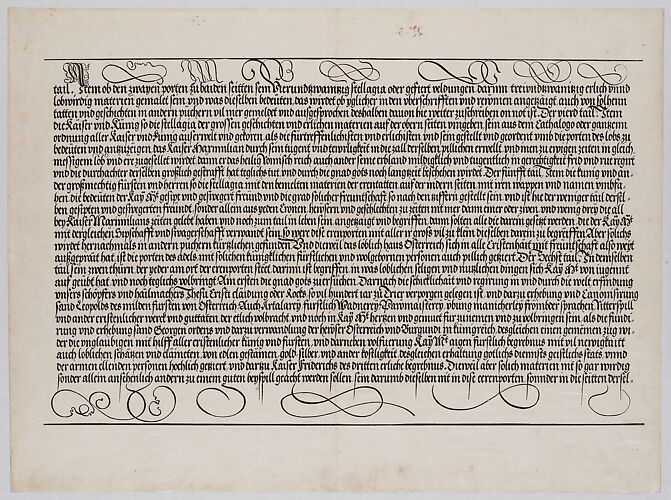 tail. Item ob den zwayen porten zu baiden seitten sein Vierundzwaintzig stellagia oder gefiert veldungen darinn treiundzwaintzig erlich vnnd
lobwirdig materien gemalet sein vnd was dieselben bedeuten das wirdet ob yglicher in den vberschrifften vnd reymen angezaigt auch von solhenn
tatten vnd geschichten in andern püchern vil mer gemeldet vnd außgesprochen deshalben dauon hie weiter zuschreiben on not ist. Der vierd tail. Item
die Kaiser vnd Künig so die stellagia der grossen geschichten vnd erlichen materien auf der obern seitten vmgeben sein aus dem Cathalogo oder gantzenn
ordnung aller Kaiser vnd Künig außerwelt vnd gehern als die fürtreffenlichisten vnd erlichisten vnd sein gestelt vnd geordent vnd die porten des lobs zu
bedeuten vnd antzuzaigen das Kaiser Maximilian durch sein tugent vnd wirdigkeit in die zall derselben pillichen erwellt vnd inen zu ewigen zeiten in gleich-
messigem lob vnd eer zugesellt wirdet dann er das heilig Römisch reich auch ander seine erbland mildigklich vnd tugentlich in gerechtigkeit frid vnd rue regirt
vnd die durchächter derselben großlich gestrafft hat teglichs tut vnd durch die gnad gots noch langzeit beschehen wirdet. Der fünfft tail. Item die künig vnd an-
der großmechtig fürsten vnd herren so die stellagia mit den bemelten materien der eerentatten auf der indern seiten mit iren wappen vnd namen vmbfa-
hen die bedeuten der Kay. Mt. gesipt vnd geswegert freund vnd die grad solicher freuntschaft so nach den ziffern gestellt sein vnd ist hie der weniger tail dersel-
ben gesipten vnd geswegerten freundt sonder allein aus yeden Cronen heusern vnd geschlechten zu zeiten mit mer dann einer oder zwen vnd wenig drey die all
bey Kaiser Maximilians zeiten gelebt haben vnd noch zum tail in leben sein angezaigt vnd begriffen dann sollen alle die darein gesetzt werden die der Kay. Mt.
mit dergleichen Sypschafft vnd swagerschafft verwandt sein so wer dise eerenporten mit aller ir groß vil zu klein dieselben darein zu begreiffen Aber solichs
wirdet hernachmals in andern püchern kürtzlichen gefunden. Vnd dieweil das löblich haus Osterreich sich in alle Cristenhait mit freuntschaft also weyt
außgepraitt hat ist die porten des adels mit solichen künigklichen fürstlichen vnd wolgebornen personen auch pillich getziert. Der Sechst tail. In demselben
tail sein zwen thürn der yeder am ort der eerenporten stet darinn ist begriffen in was loblichen seligen vnd nutzlichen dingen sich Kay. Mt. von iugennt
auf geübt hat vnd noch teglichs volbringt. Am ersten die gnad gots zuersuchen. Darnach die schicklichait vnd regirung in vnd durch die welt erfindung
vnsers schöpfers vnd hailmachers Jhesu Cristi claidung oder Rocks so vil hundert iar zu Trier verporgen gelegen ist vnd dartzu erhebung vnd Canonisirung
sand Leopolds des milden fürsten von Osterreich Auch Artalarey fürstlich Mumerey Paronmaisterey vbung manicherley frombder sprachen Ritterspill
vnd ander ritterlicher werck vnd guttätten der etlich volbracht vnd noch in Kay. Mt. hertzen vnd gemüt fürzunemen vnd zuvolbringen sein als die fundi-
rung vnd erhebung sand Georgen ordens vnd dartzu verwandlung der heüser Osterreich vnd Burgundi in künigreich desgleichen einen gemeinen zug wi-
der die vnglaubigen mit hilff aller cristenlicher künig vnd fürsten, vnd darneben volfierung Kay. Mt. aigen fürstlich begrebnus mit vil nerwigkaitt
auch loblichen schätzen vnd claineten von edlen gestainen gold silber vnd ander köstligkeit desgleichen erhaltung götlichs diennsts geistlichs stats vnnd
der armen ellenden personen hochlich getziert vnd dartzu Kaiser Friderichs des dritten erliche begrebnus. Dieweil aber solich materien mit so gar wirdig
sonder allein ansehenlich andern zu einem guten beyspill geacht werden sollen sein darumb dieselben mit in dise eerenporten sonnder in die seitten dersel-